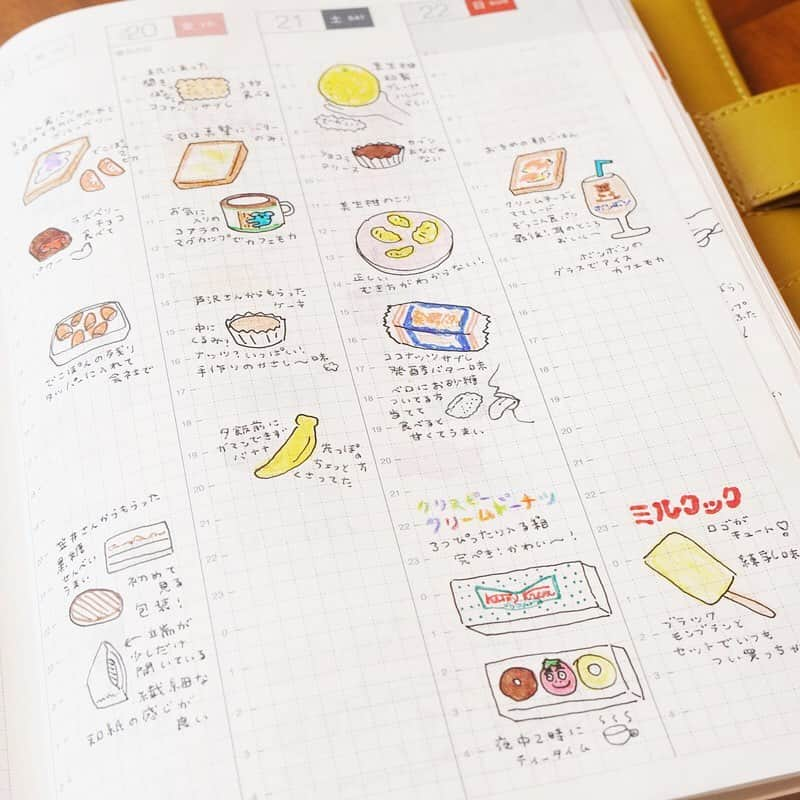 20 金 FRI
21 土 SAT
22 日 SUN
でこぽん
ラズベリー
チョコ
食べて
でこぽんの残り
タッパーに入れて
会社で
笠井さんからもらった
黒胡麻
せんべい
うまい
初めて
見る
包装!
少しだけ
開いている
繊細な
和紙の感じが
良い
3枚
食べる
ココナッツサブレ
今日は素直にバター
のみ!
お気に
入りの
コアラの
マグカップでカフェモカ
芦沢さんからもらった
ケーキ
中に
くるみ!
ナッツ?いっぱい!
手作りのやさし〜味
夕飯前に
ガマンできず
バナナ
先っぽの
ちょっと方
くさってた
美生柑
ショコラ
美生柑のこり
正しい
むき方がわからない!
ココナッツサブレ
発酵バター味
ベロにお砂糖
ついてる方
当てて
食べると
甘くてうまい
クリスピー
クリームドーナツ
3つぴったり入る箱
完ぺき!かわい〜!
Krispy Kreme
夜中2時に
ティータイム
おやすみ朝ごはん
クリームチーズと
最後、耳のところ
おいし〜
ボンボンの
グラスでアイス
カフェモカ
ミルクック
ロゴが
キュート♡
練乳味
ブラック
モンブランと
セットでいつも
つい買っちゃ